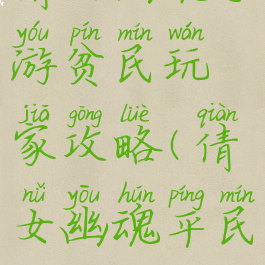 yóu pín mín wán
游贫民玩
jiā gōng lüè qiàn
家攻略(倩
nǚ yōu hún píng mín
女幽魂平民